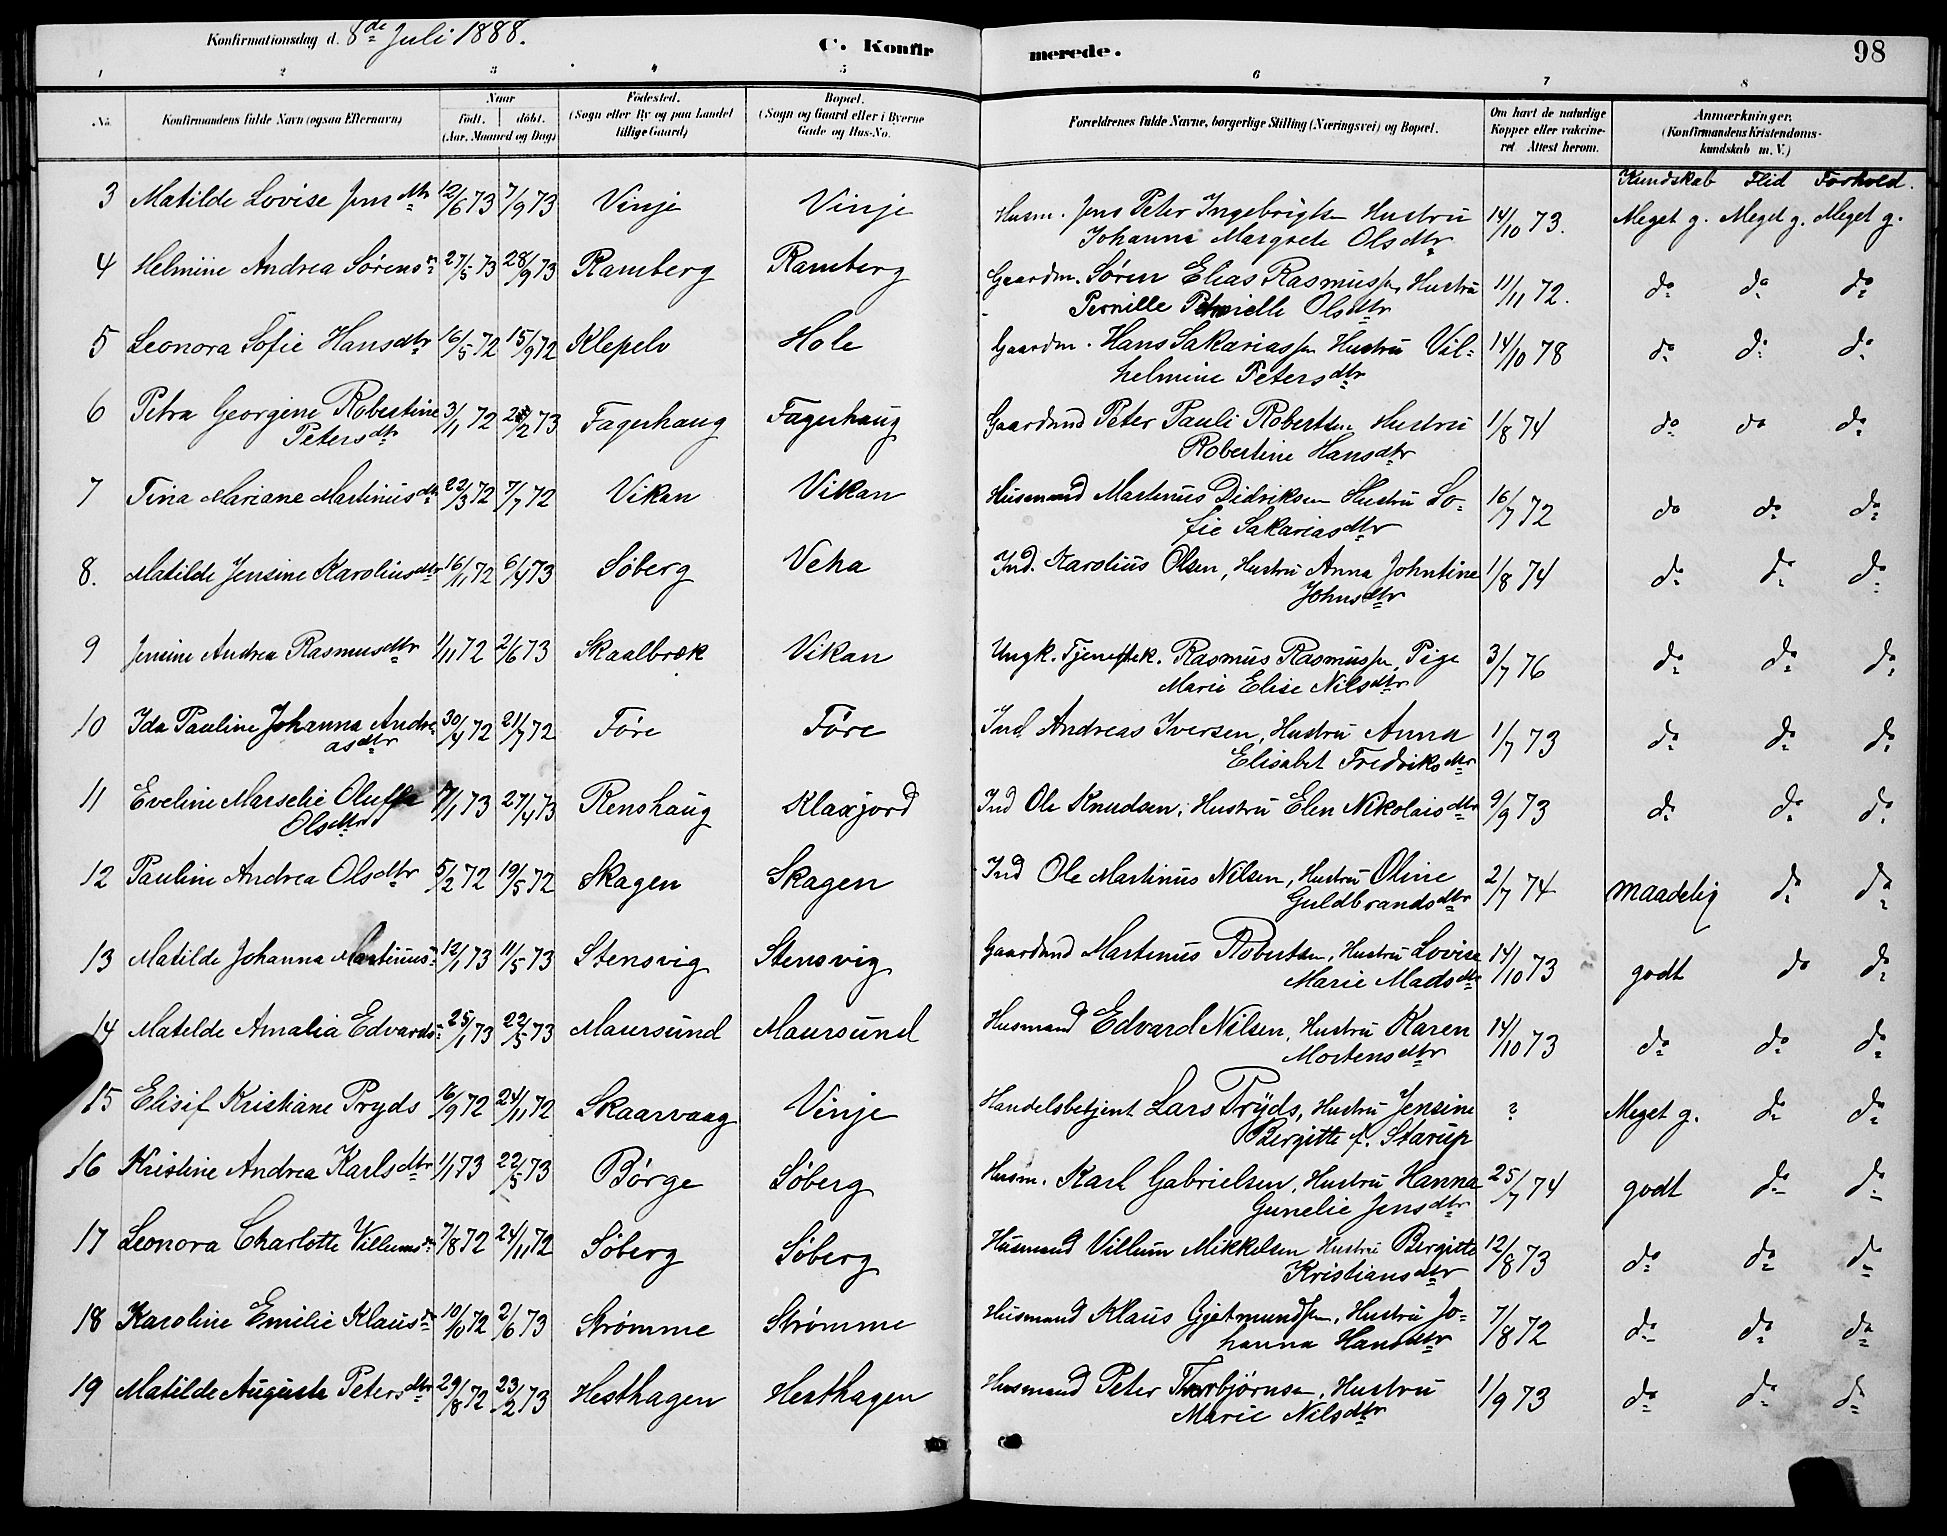 Konfirmationsdag d. 8de Juli 1888.
C. Konfirmerede.
98
1 2 3 4 5 6 7 8
No. Konfirmandens fulde Navn (ogsaa Efternavn) Naar födt. döbt. (Aar, Maaned og Dag) Födested. (Sogn eller By og paa Landet tillige Gaard) Bopæl. (Sogn og Gaard eller i Byerne Gade og Hus-No. Forældrenes fulde Navne, borgerlige Stilling (Næringsvei) og Bopæl. Om havt de naturlige Kopper eller vakcineret Attest herom. Anmærkninger. (Konfirmandens Kristendomskundskab m. V.)
Kundskab Flid Forhold.
3 Matilde Lovise Jens dtr 12/6 73 7/9 73 Vinje Vinje Husm. Jens Peter Ingebrigtsen Hustru 14/10 73. Meget g. Meget g. Meget g.
Johanna Margrete Olsdtr
4 Helmine Andrea Sørens 27/5 73 28/9 73 Ramberg Ramberg Gaardm. Søren Elias Rasmussen Hustru 11/11 72. do do do
Pernille Petrielle Olsdtr
5 Leonora Sofie Hansdtr 16/5 72 15/9 72 Klepelv Hole Gaardm. Hans Sakariassen Hustru Vil- 14/10 78 do do do
helmine Petersdtr
6 Petra Georgine Robertine 3/1 72 /2 73 Fagerhaug Fagerhaug Gaardmd Peter Pauli Robertsen Hustru 1/8 74 do do do
Petersdtr Robertine Hansdtr
7 Tina Mariane Martinusdtr 22/3 72 7/7 72 Vikan Vikan Husmand Martinus Didriksen Hustru So- 16/7 72 do do do
fie Sakariasdtr
8. Matilde Jensine Karoliusdtr 16/11 72 6/4 73 Søberg Veha Ind. Karolius Olsen, Hustru Anna Johntine 1/8 74 do do do
Johnsdtr
9 Jensine Andrea Rasmusdtr 1/11 72 2/6 73 Skaalbrek Vikan Ungk. Tjenestek. Rasmus Rasmussen, Pige 3/7 76 do do do
Marie Elise Nilsdtr
10 Ida Pauline Johanna Andre- 30/4 72 21/7 72 Føre Føre Ind. Andreas Iversen, Hustru Anna 1/7 73 do do do
asdtr Elisabet Fredriksdtr
11 Eveline Marselie Oluffa 7/1 73 27/4 73 Renshaug Klaxjord Ind Ole Knudsen, Hustru Elen Nikolaisdtr 9/9 73 do do do
Olsdtr
12 Pauline Andrea Olsdtr 5/2 72 19/5 72 Skagen Skagen Ind Ole Martinus Nilsen, Hustru Oline 2/7 74 maadelig do do
Guldbrandsdtr
13 Matilde Johanna Martinus 12/1 73 11/5 73 Stensvig Stensvig Gaardmd Martinus Robertsen, Hustru Lovise 14/10 73 godt do do
Marie Madsdtr
14 Matelde Amalia Edvards 25/1 73 22/5 73 Maursund Maursund Husmand Edvard Nilsen, Hustru Karen 14/10 73 do do do
Mortensdtr
15 Elisif Kristiane Pryds 16/9 72 24/11 72 Skaarvaag Vinje Handelsbetjent Lars Pryds, Hustru Jensine ? Meget g. do do
Bergitte f. Starup
16 Kristine Andrea Karlsdtr 1/1 73 22/5 73 Børge Søberg Husm. Karl Gabrielsen, Hustru Hanna 25/7 74 godt do do
Gunelie Jensdtr
17 Leonora Charlotte Villums 7/8 72 24/11 72 Søberg Søberg Husmand Villum Mikkelsen Hustru Bergitte 12/8 73 do do do
Kristiansdtr
18 Karoline Emilie Klaus 10/10 72 2/6 73 Strømme Strømme Husmand Klaus Gjetmundsen, Hustru Jo- 7/8 72 do do do
hanna Hansdtr
19 Matilde Augusta Petersdtr 29/8 72 23/2 73 Hesthagen Hesthagen Husmand Peter Thorbjørnsen, Hustru 1/9 73 do do do
Marie Nilsdtr